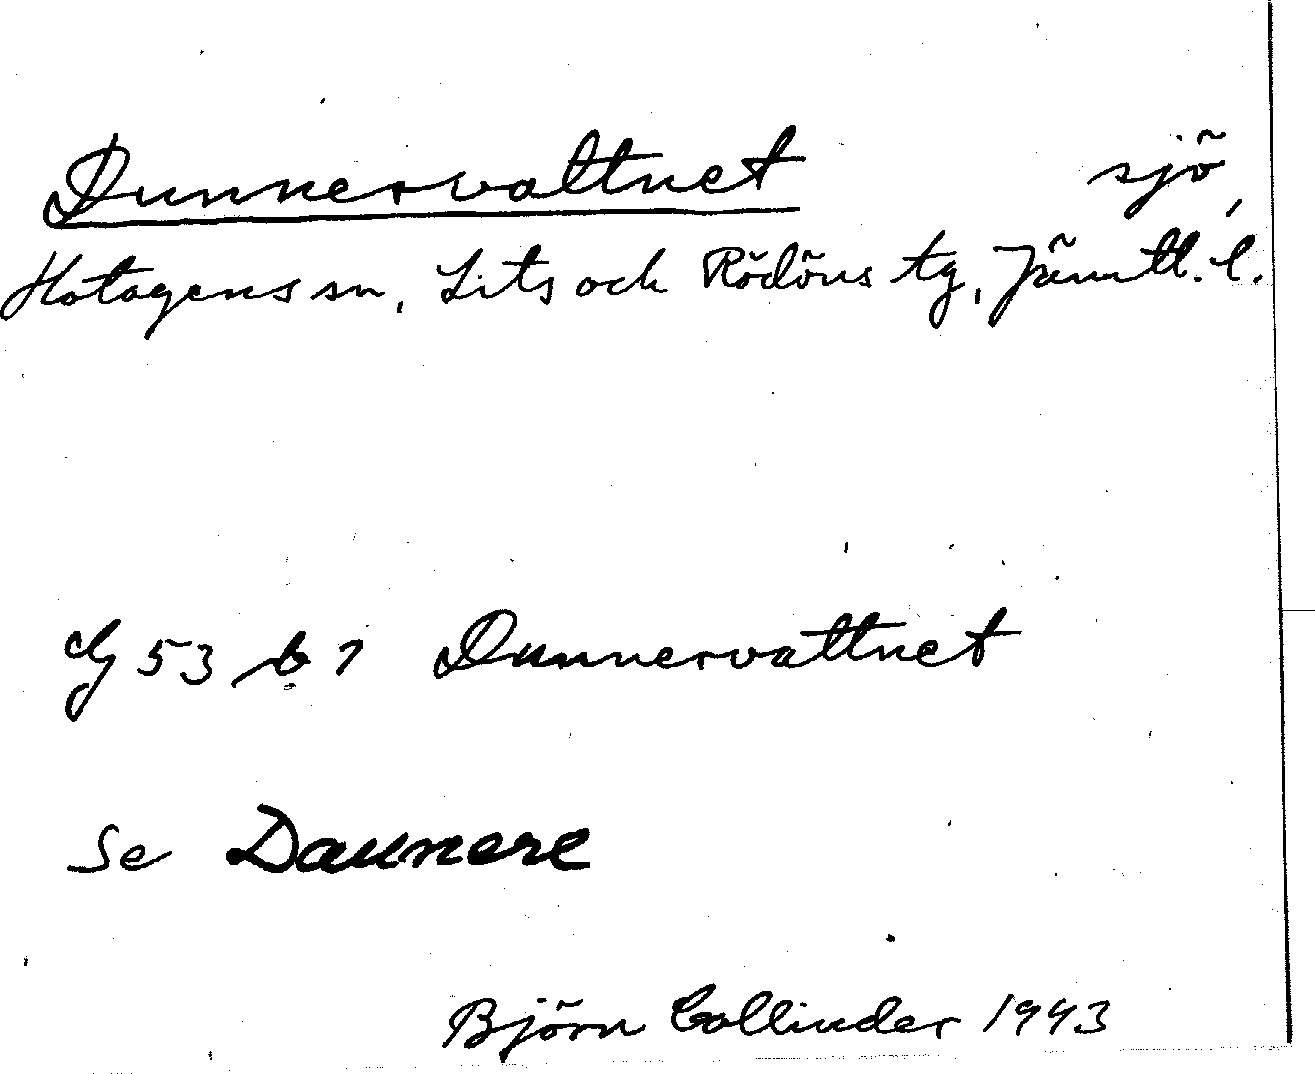 Dunnervattnet sjö,
Hotagens sn, Lits och Rödöns tg, Jämtl. l.
53 b 1 Dunnervattnet
Se Daunere
Björn Collinder 1943